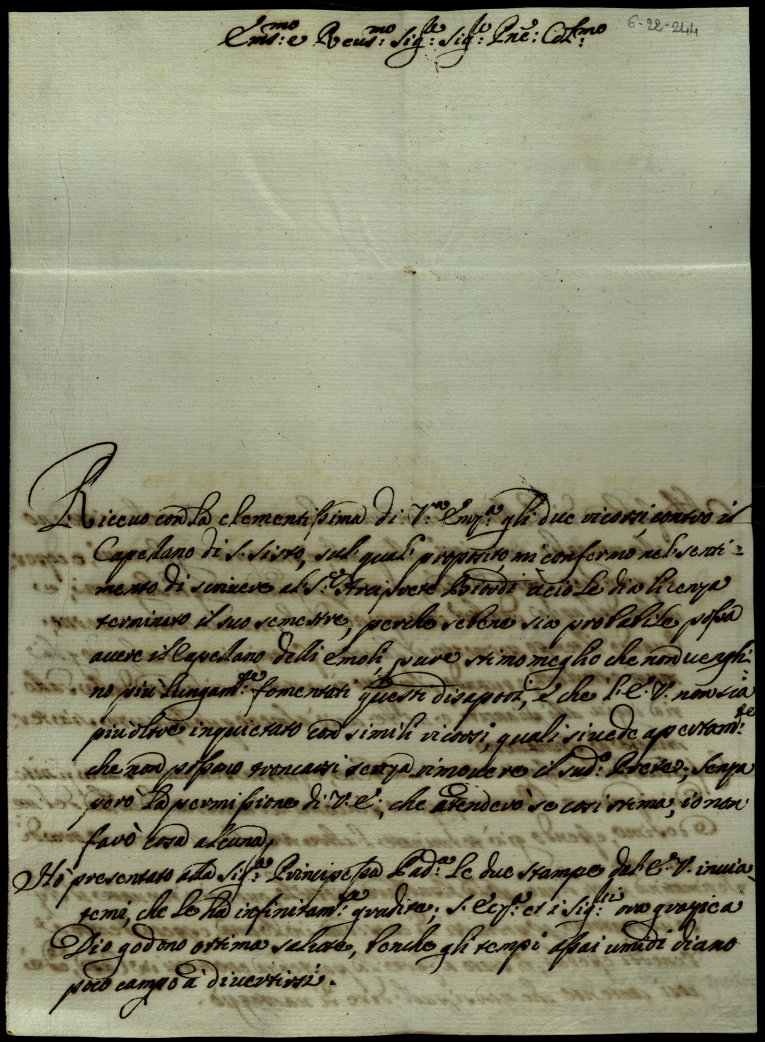 Em:mo e Reus:mo Sig:re Sig:re Pne: Col:mo
6-22-244
Riceuo con la clementissima di V.ra Em.za gli due ricorsi contro il
Capellano di S. Sisto, sul qual proposito mi confermo nel senti=
mento di scriuere al S.r Arciprete Biordi acciò le dia licenza
terminato il suo semestre, perche sebene sia probabile possa
auere il Capellano delli emoli, pure stimo meglio che non uenghi-
no più lungam.te fomentati questi disapori, e che l'E. V. non sia
più oltre inquietato con simili ricorsi, quali si uede apertam.te
che non possano troncarsi senza rimouere il sud.o Prete; senza
però la permissione di V. E., che attenderò se così stima, io non
farò cosa alcuna,
Hò presentato alla Sig.ra Principessa Pad.a le due stampe dal E. V. inuia
temi, che le hà infinitam.te gradite; S. Ecc.za et i Sig.ri ora grazie a
Dio godono ottima salute, benche gli tempi assai umidi diano
poco campo à diuertirsi.